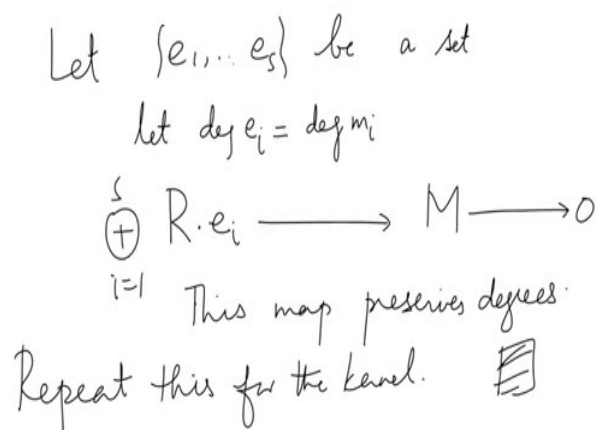 Let {e₁,... eₛ} be a set
let deg eᵢ = deg mᵢ
s
⊕ R.eᵢ ⟶ M ⟶ 0
i=1
This map preserves degrees.
Repeat this for the kernel.